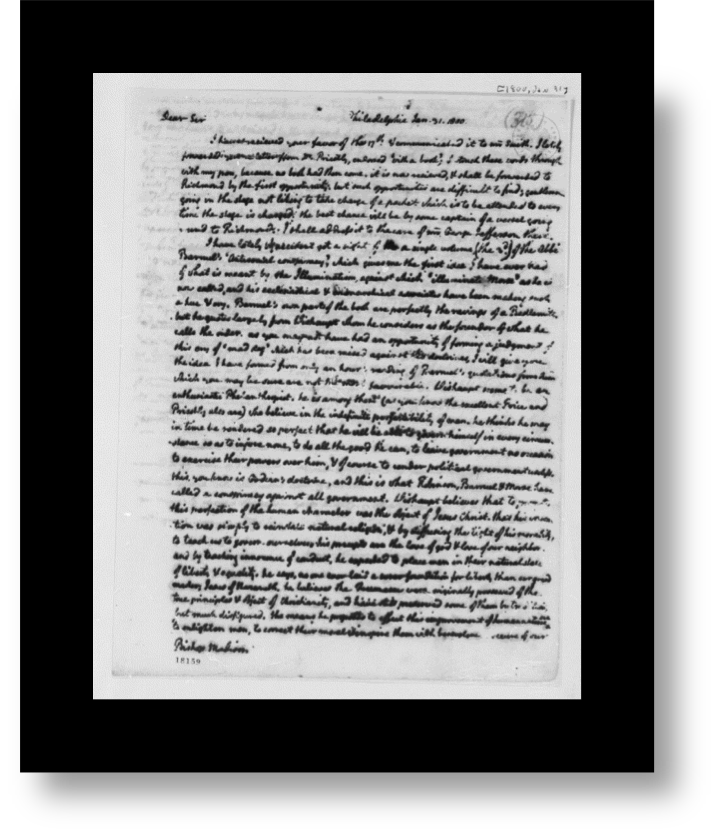 [1800, Jan 31]
Dear Sir Philadelphia Jan. 31. 1800
I have received your favor of the 17th & communicated it to mr Smith. I lately
forwarded your letter from Dr. Priestly, endorsed 'with a book'; I struck these words through
with my pen, because no book had then come. it is now received, & shall be forwarded to
Richmond by the first opportunity: but such opportunities are difficult to find; gentlemen
going in the stage not liking to take charge of a packet which is to be attended to every
time the stage is changed. the best chance will be by some captain of a vessel going
round to Richmond. I shall address it to the care of mr George Jefferson there.
I have lately by accident got a sight of a single volume (the 3d.) of the Abbé
Barruel's 'Antisocial conspiracy,' which gives me the first idea I have ever had
of what is meant by the Illuminatism against which 'illuminate Morse' as he is
now called, and his ecclesiastical & monarchical associates have been making such
a hue & cry. Barruel's own parts of the book are perfectly the ravings of a Bedlamite.
but he quotes largely from Wishaupt whom he considers as the founder of what he
calls the order. as you may not have had an opportunity of forming a judgment of
this cry of 'mad dog' which has been raised against his doctrines, I will give you
the idea I have formed from only an hour's reading of Barruel's quotations from him
which you may be sure are not the most favorable. Wishaupt seems to be an
enthusiastic Philanthropist. he is among those (as you know the excellent Price and
Priestly also are) who believe in the indefinite perfectibility of man. he thinks he may
in time be rendered so perfect that he will be able to govern himself in every circum-
stance so as to injure none, to do all the good he can, to leave government no occasion
to exercise their powers over him, & of course to render political government useless.
this you know is Godwin's doctrine, and this is what Robinson, Barruel & Morse have
called a conspiracy against all government. Wishaupt believes that to
this perfection of the human character was the object of Jesus Christ. that his inten-
tion was simply to reinstate natural religion, & by diffusing the light of his morality,
to teach us to govern ourselves. his precepts are the love of god & love of our neighbor.
and by teaching innocence of conduct, he expected to place men in their natural state
of liberty & equality. he says, no one ever laid a surer foundation for liberty than our grand
master, Jesus of Nazareth. he believes the Freemasons were originally possessed of the
true principles & object of Christianity, and have still preserved some of them by tradition,
but much disfigured. the means he proposes to effect this improvement of human nature
to enlighten men, to correct their morals & inspire them with benevolence
Bishop Madison.
18159